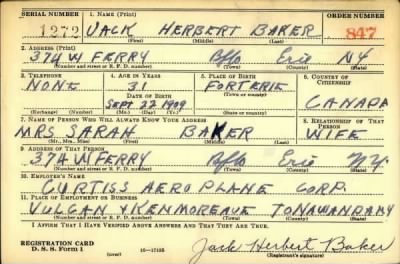 SERIAL NUMBER 1. NAME (Print) ORDER NUMBER
1272 JACK HERBERT BAKER 847
(First) (Middle) (Last)
2. ADDRESS (Print)
374 W FERRY Bflo Erie NY
(Number and street or R. F. D. number) (Town) (County) (State)
3. TELEPHONE 4. AGE IN YEARS 5. PLACE OF BIRTH 6. COUNTRY OF CITIZENSHIP
NONE 31 FORT ERIE
DATE OF BIRTH (Town or county)
Sept 22 1909 CANADA
(Exchange) (Number) (Mo.) (Day) (Yr.) (State or country)
7. NAME OF PERSON WHO WILL ALWAYS KNOW YOUR ADDRESS 8. RELATIONSHIP OF THAT PERSON
MRS SARAH BAKER WIFE
(Mr., Mrs., Miss) (First) (Middle) (Last)
9. ADDRESS OF THAT PERSON
374 W FERRY Bflo Erie N.Y.
(Number and street or R. F. D. number) (Town) (County) (State)
10. EMPLOYER'S NAME
CURTISS AEROPLANE CORP.
11. PLACE OF EMPLOYMENT OR BUSINESS
VULCAN & KENMORE AVE TONAWANDA NY
(Number and street or R. F. D. number) (Town) (County) (State)
I AFFIRM THAT I HAVE VERIFIED ABOVE ANSWERS AND THAT THEY ARE TRUE.
REGISTRATION CARD
D. S. S. Form 1 (over) 16—17105 Jack Herbert Baker
(Registrant's signature)